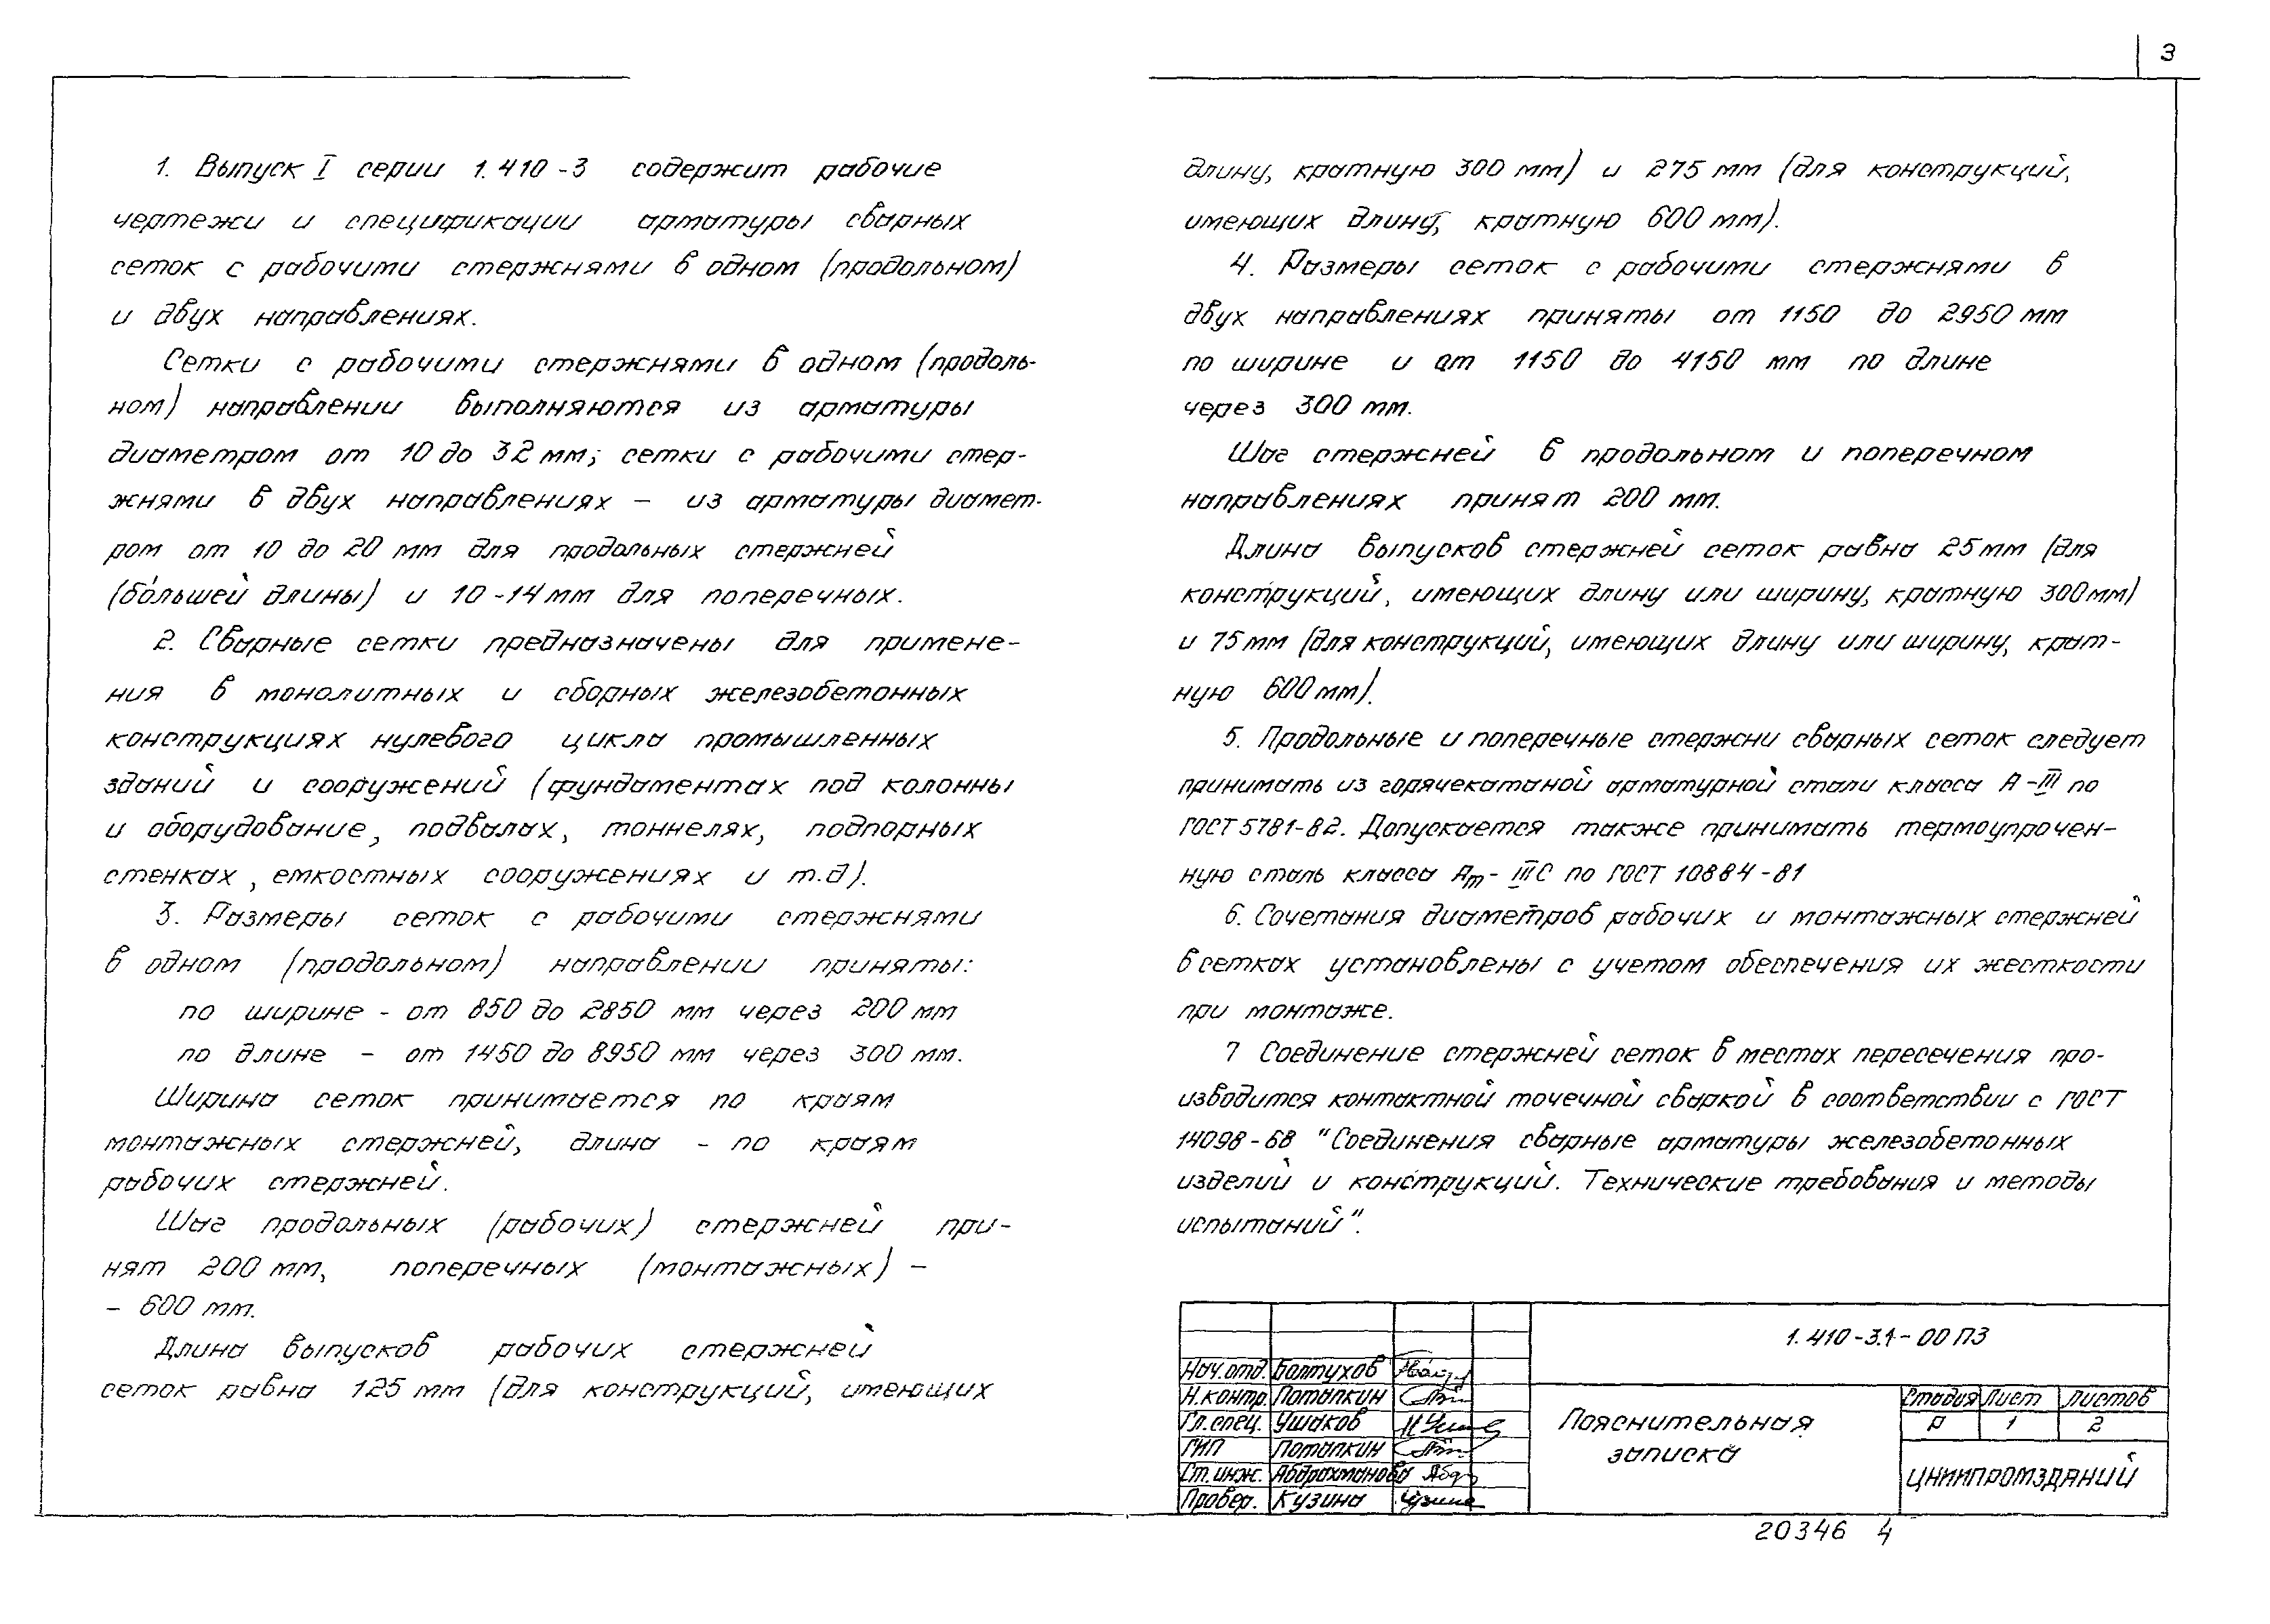 3
1. Выпуск I серии 1.410-3 содержит рабочие
чертежи и спецификации арматуры сварных
сеток с рабочими стержнями в одном (продольном)
и двух направлениях.
Сетки с рабочими стержнями в одном (продоль-
ном) направлении выполняются из арматуры
диаметром от 10 до 32 мм; сетки с рабочими стер-
жнями в двух направлениях – из арматуры диамет-
ром от 10 до 20 мм для продольных стержней
(бо́льшей длины) и 10-14 мм для поперечных.
2. Сварные сетки предназначены для примене-
ния в монолитных и сборных железобетонных
конструкциях нулевого цикла промышленных
зданий и сооружений (фундаментах под колонны
и оборудование, подвалах, тоннелях, подпорных
стенках, емкостных сооружениях и т.д).
3. Размеры сеток с рабочими стержнями
в одном (продольном) направлении приняты:
по ширине - от 850 до 2850 мм через 200 мм
по длине - от 1450 до 8950 мм через 300 мм.
Ширина сеток принимается по краям
монтажных стержней, длина - по краям
рабочих стержней.
Шаг продольных (рабочих) стержней при-
нят 200 мм, поперечных (монтажных) –
– 600 мм.
Длина выпусков рабочих стержней
сеток равна 125 мм (для конструкций, имеющих
длину, кратную 300 мм) и 275 мм (для конструкций,
имеющих длину, кратную 600 мм).
4. Размеры сеток с рабочими стержнями в
двух направлениях приняты от 1150 до 2950 мм
по ширине и от 1150 до 4150 мм по длине
через 300 мм.
Шаг стержней в продольном и поперечном
направлениях принят 200 мм.
Длина выпусков стержней сеток равна 25 мм (для
конструкций, имеющих длину или ширину, кратную 300 мм)
и 75 мм (для конструкций, имеющих длину или ширину, крат-
ную 600 мм).
5. Продольные и поперечные стержни сварных сеток следует
принимать из горячекатаной арматурной стали класса А-III по
ГОСТ 5781-82. Допускается также принимать термоупрочен-
ную сталь класса Ат-IIIС по ГОСТ 10884-81
6. Сочетания диаметров рабочих и монтажных стержней
в сетках установлены с учетом обеспечения их жесткости
при монтаже.
7 Соединение стержней сеток в местах пересечения про-
изводится контактной точечной сваркой в соответствии с ГОСТ
14098-68 "Соединения сварные арматуры железобетонных
изделий и конструкций. Технические требования и методы
испытаний".
1.410-3.1-00 ПЗ
Нач. отд. Болтухов
Н.контр. Потапкин
Гл. спец. Ушаков
ГИП Потапкин
Ст. инж. Абдрахманова
Провер. Кузина
Пояснительная
записка
Стадия Лист Листов
Р 1 2
ЦНИИПРОМЗДАНИЙ
20346 4